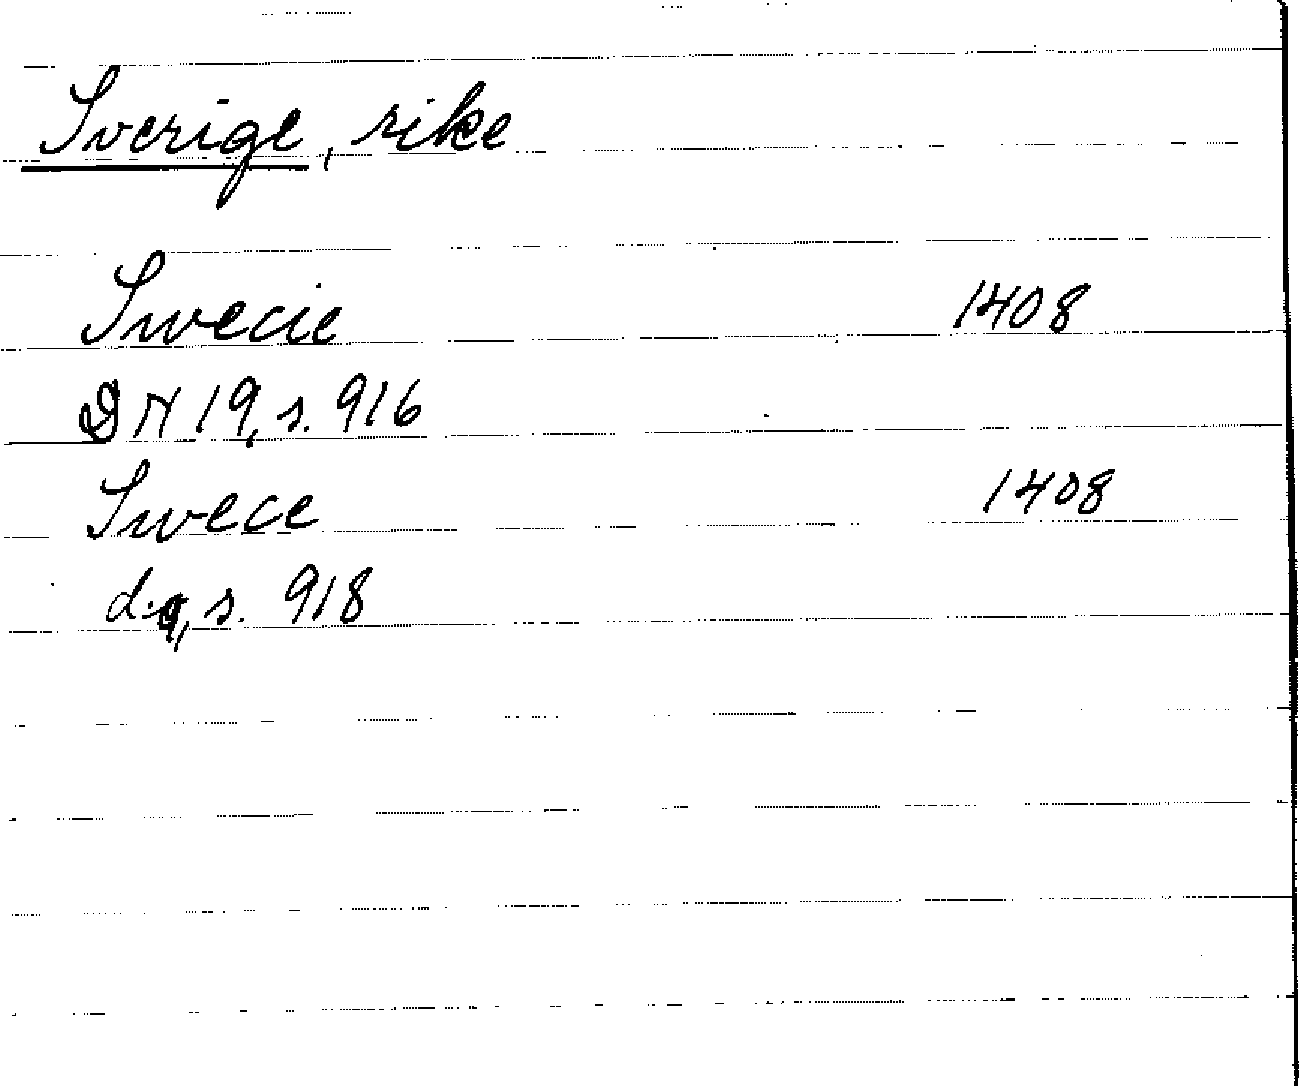 Sverige, rike
Swecie 1408
DN 19, s. 916
Swece 1408
d:o, s. 918